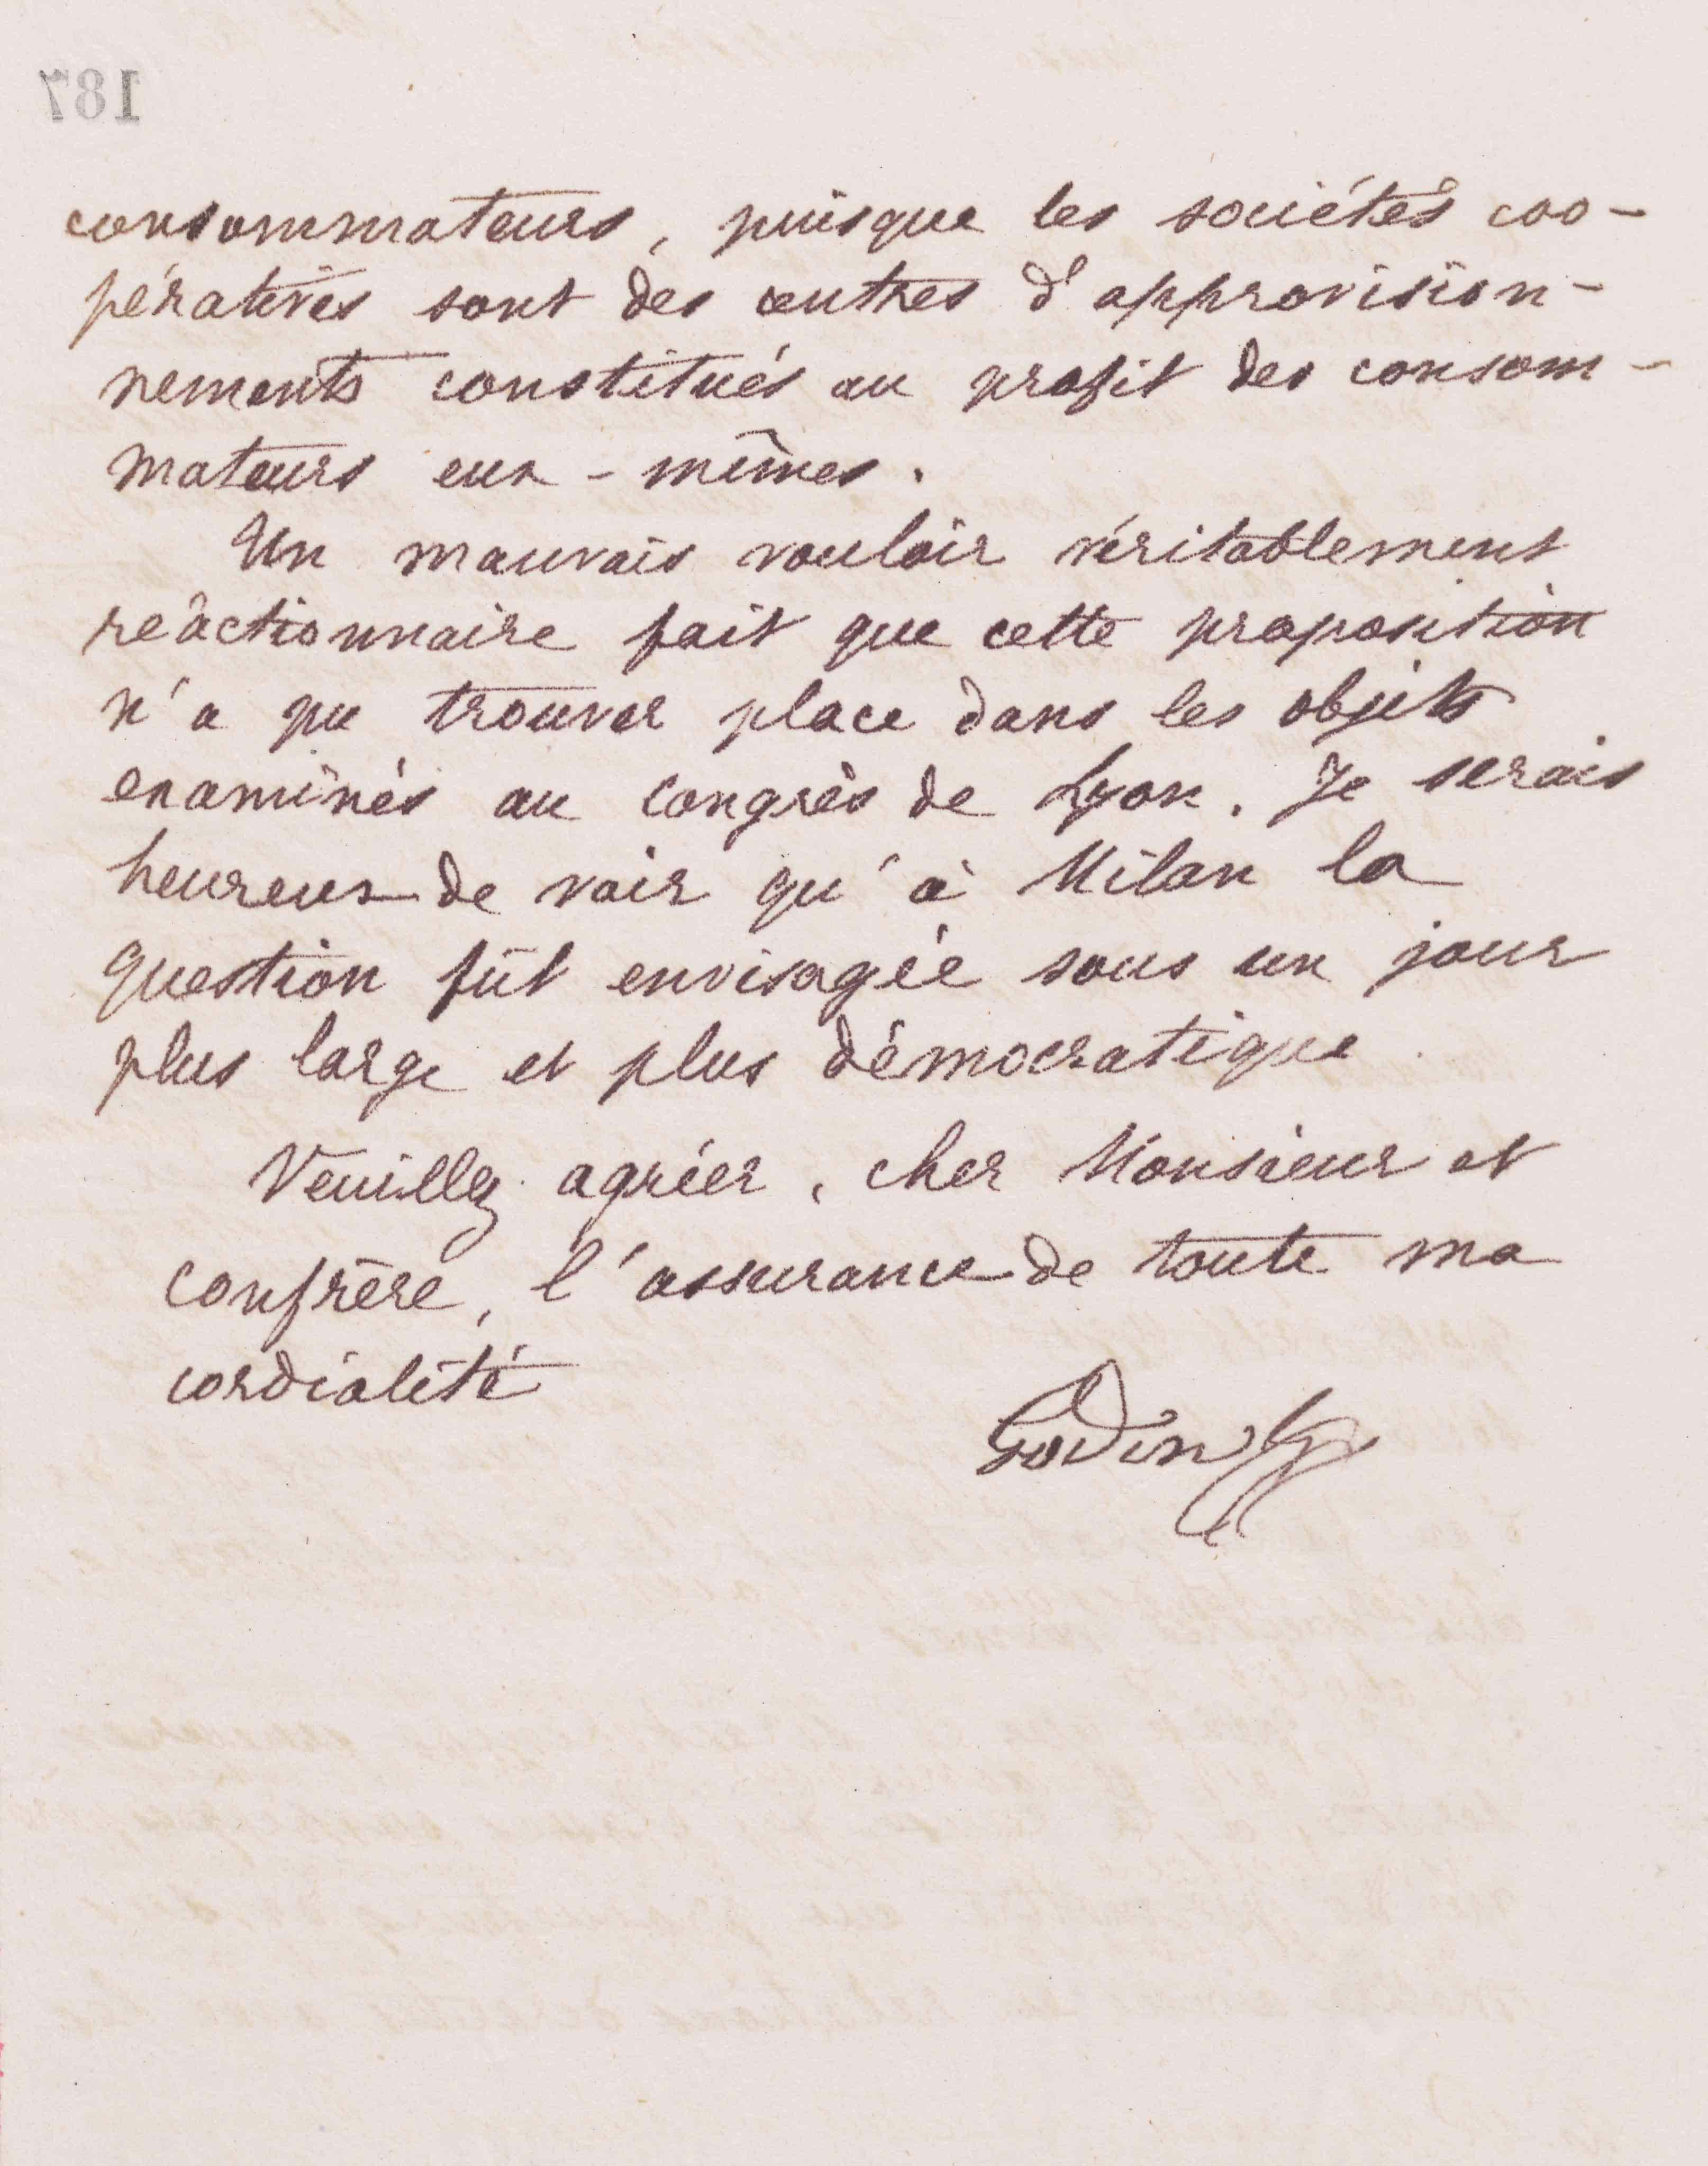 187
consommateurs, puisque les sociétés coo-
pératives sont des centres d'approvision-
nements constitués au profit des consom-
mateurs eux-mêmes.
Un mauvais vouloir véritablement
réactionnaire fait que cette proposition
n'a pu trouver place dans les objets
examinés au Congrès de Lyon. Je serais
heureux de voir qu'à Milan la
question fût envisagée sous un jour
plus large et plus démocratique.
Veuillez agréer, cher Monsieur et
confrère, l'assurance de toute ma
cordialité
Godin